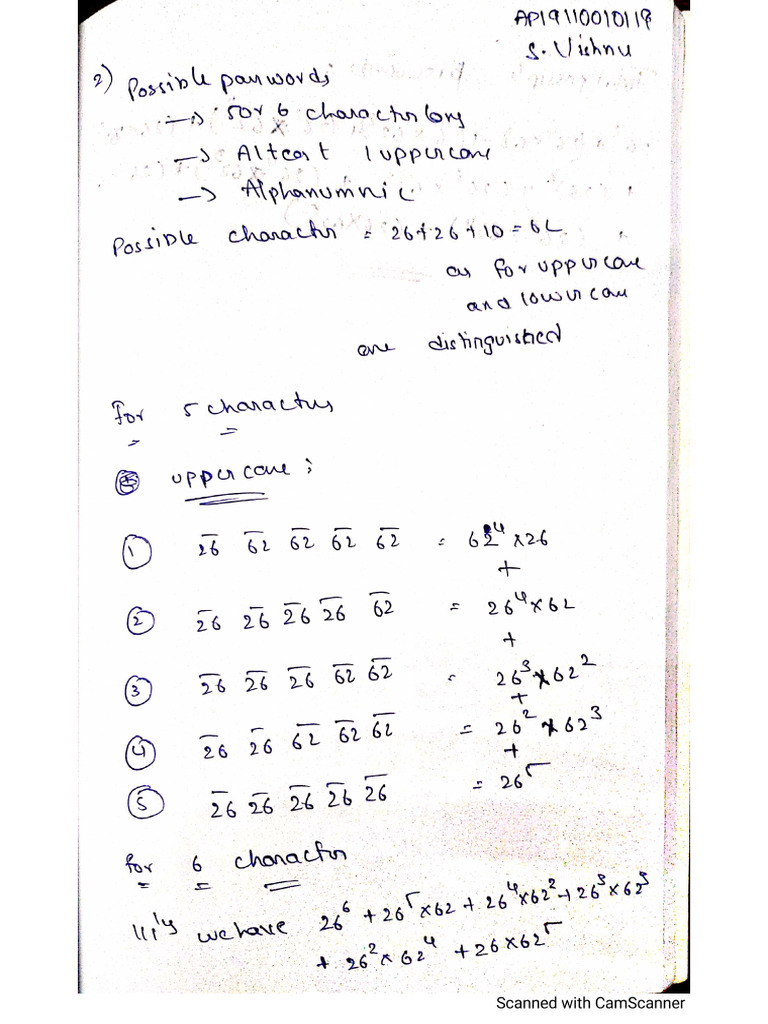 AP19110010118
S. Vishnu
2) Possible passwords
→ 5 or 6 character long
→ Atleast 1 uppercase
→ Alphanumric
Possible character = 26+26+10 = 62
as for uppercase
and lowercase
are distinguished
for 5 charactes
uppercase :
① 26 62 62 62 62 = 62⁴ × 26
+
② 26 26 26 26 62 = 26⁴ × 62
+
③ 26 26 26 62 62 = 26³ × 62²
+
④ 26 26 62 62 62 = 26² × 62³
+
⑤ 26 26 26 26 26 = 26⁵
for 6 character
lll'ly we have 26⁶ + 26⁵ × 62 + 26⁴ × 62² + 26³ × 62³
+ 26² × 62⁴ + 26 × 62⁵
Scanned with CamScanner